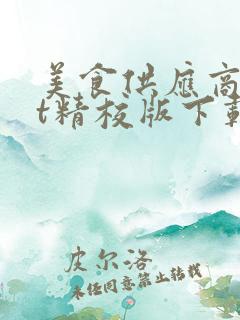 美食供应商
t精校版下载
皮尔洛
未经同意禁止转载